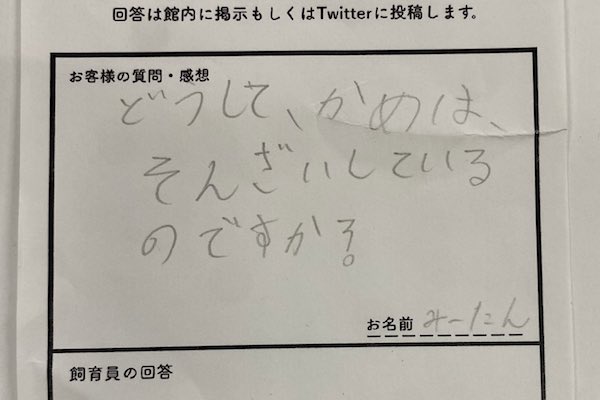 回答は館内に掲示もしくはTwitterに投稿します。
お客様の質問・感想
どうして、かめは、
そんざいしている
のですか?
お名前 みーたん
飼育員の回答